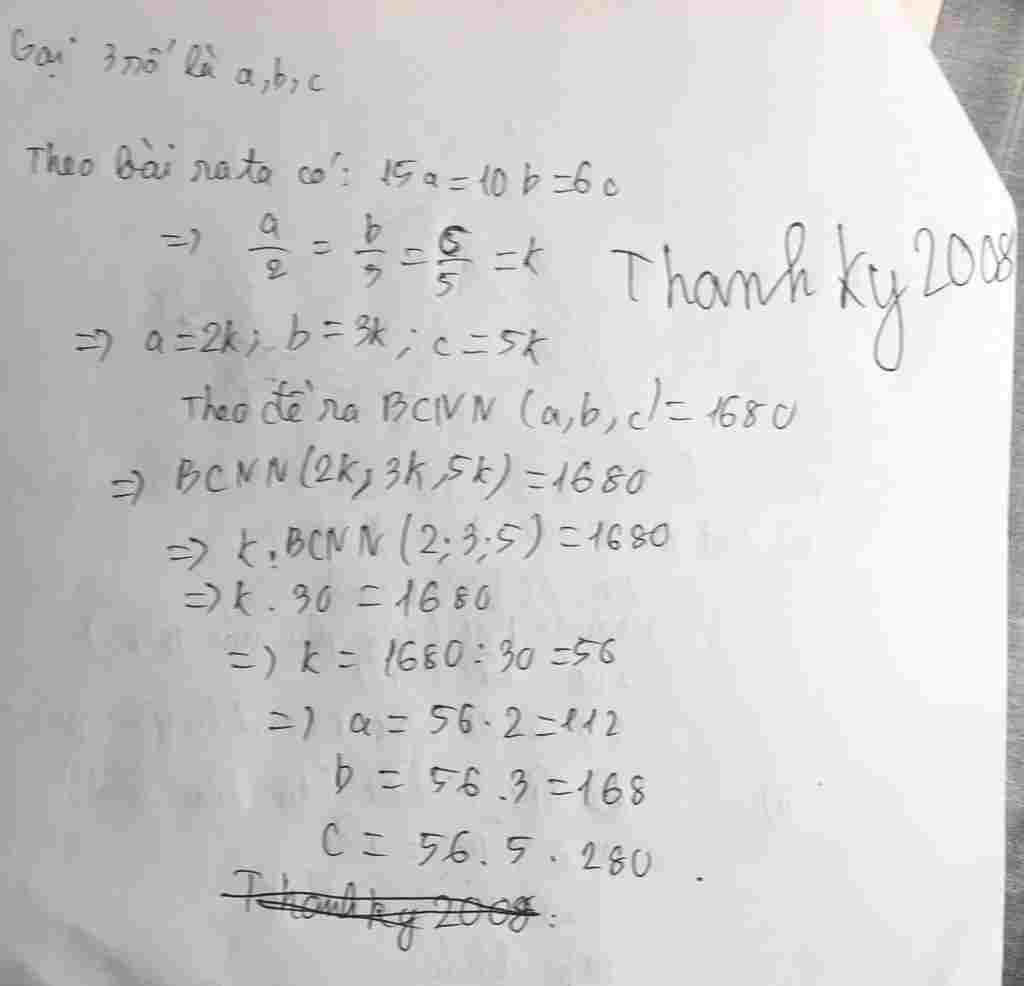 Gọi 3 số là a, b, c
Theo bài ra ta có: 15a = 10b = 6c
=> a/2 = b/3 = 6/5 = k
Thanh Ky 2008
=> a = 2k; b = 3k; c = 5k
Theo đề ra BCNN (a, b, c) = 1680
=> BCNN (2k, 3k, 5k) = 1680
=> k. BCNN (2; 3; 5) = 1680
=> k. 30 = 1680
=> k = 1680 : 30 = 56
=> a = 56. 2 = 112
b = 56. 3 = 168
C = 56. 5. 280.
Thanh ky 2008.